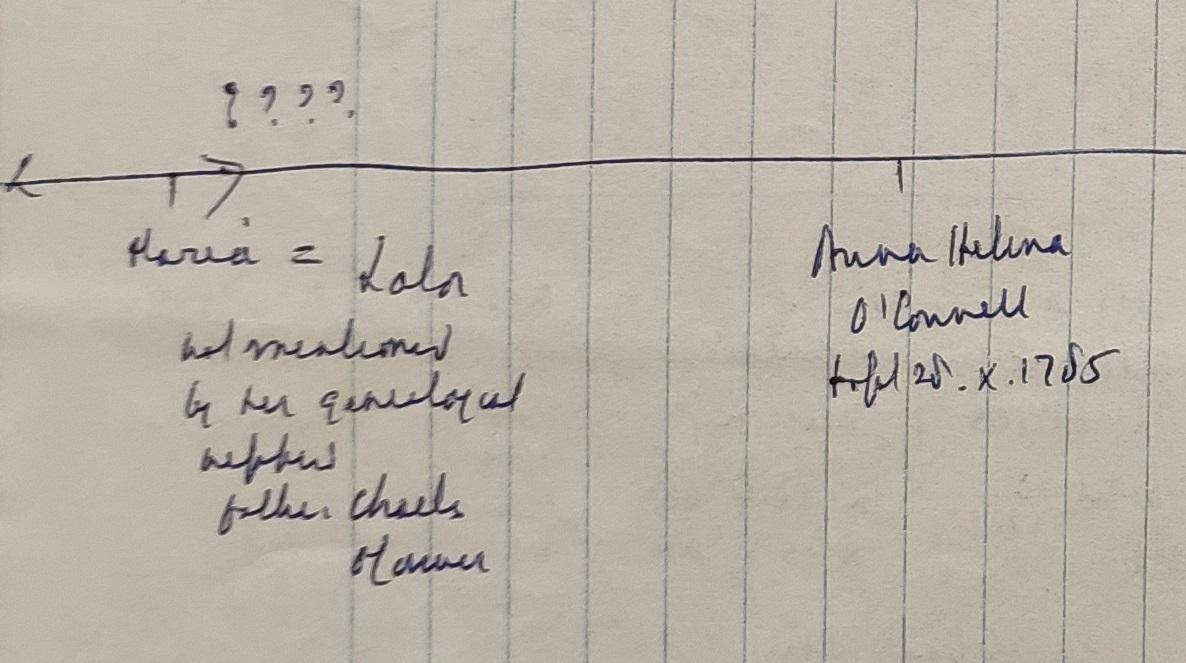 ? ? ? ?
Maria = Lalor
not mentioned
by her genealogical
nephew
father Charles
Anna Helena
O'Connell
25.x.1785